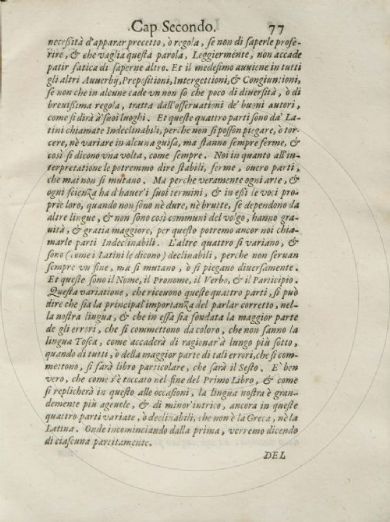 Cap Secondo. 77
necessità d'apparar precetto, ò regola, se non di saperle profe-
rire, & che vaglia questa parola, Leggiermente, non accade
patir fatica di saperne altro. Et il medesimo auuiene in tutti
gli altri Auuerbij, Prepositioni, Intergettioni, & Congiuntioni,
se non che in alcune cade vn non sò che poco di diuersità, ò di
breuissima regola, tratta dall'osseruationi de' buoni autori,
come si dirà à' suoi luoghi. Et queste quattro parti sono da' La-
tini chiamate Indeclinabili, perche non si posson piegare, ò tor-
cere, nè variare in alcuna guisa, ma stanno sempre ferme, &
così si dicono vna volta, come sempre. Noi in quanto all'in-
terpretatione le potremmo dire stabili, ferme, ouero parti,
che mai non si mutano. Ma perche veramente ogni arte, &
ogni scienza ha d'hauer'i suoi termini, & in essi le voci pro-
prie loro, quando non sono nè dure, nè brutte, se dependono da
altre lingue, & non sono così communi del volgo, hanno gra-
uità, & gratia maggiore, per questo potremo ancor noi chia-
marle parti Indeclinabili. L'altre quattro si variano, &
sono (come i Latini le dicono) declinabili, perche non seruan
sempre vn fine, ma si mutano, ò si piegano diuersamente.
Et queste sono il Nome, il Pronome, il Verbo, & il Participio.
Questa variatione, che riceuono queste quattro parti, si può
dire che sia la principal importanza del parlar corretto, nel-
la nostra lingua, & che in essa sia fondata la maggior parte
de gli errori, che si commettono da coloro, che non sanno la
lingua Tosca, come accaderà di ragionar'à lungo più sotto,
quando di tutti, ò della maggior parte di tali errori, che si com-
mettono, si farà libro particolare, che sarà il Sesto. E' ben
vero, che come s'è toccato nel fine del Primo Libro, & come
si replicherà in questo alle occasioni, la lingua nostra è gran-
demente più ageuole, & di minor'intrico, ancora in queste
quattro parti variate, ò declinabili, che non è la Greca, nè la
Latina. Onde incominciando dalla prima, verremo dicendo
di ciascuna partitamente.
DEL